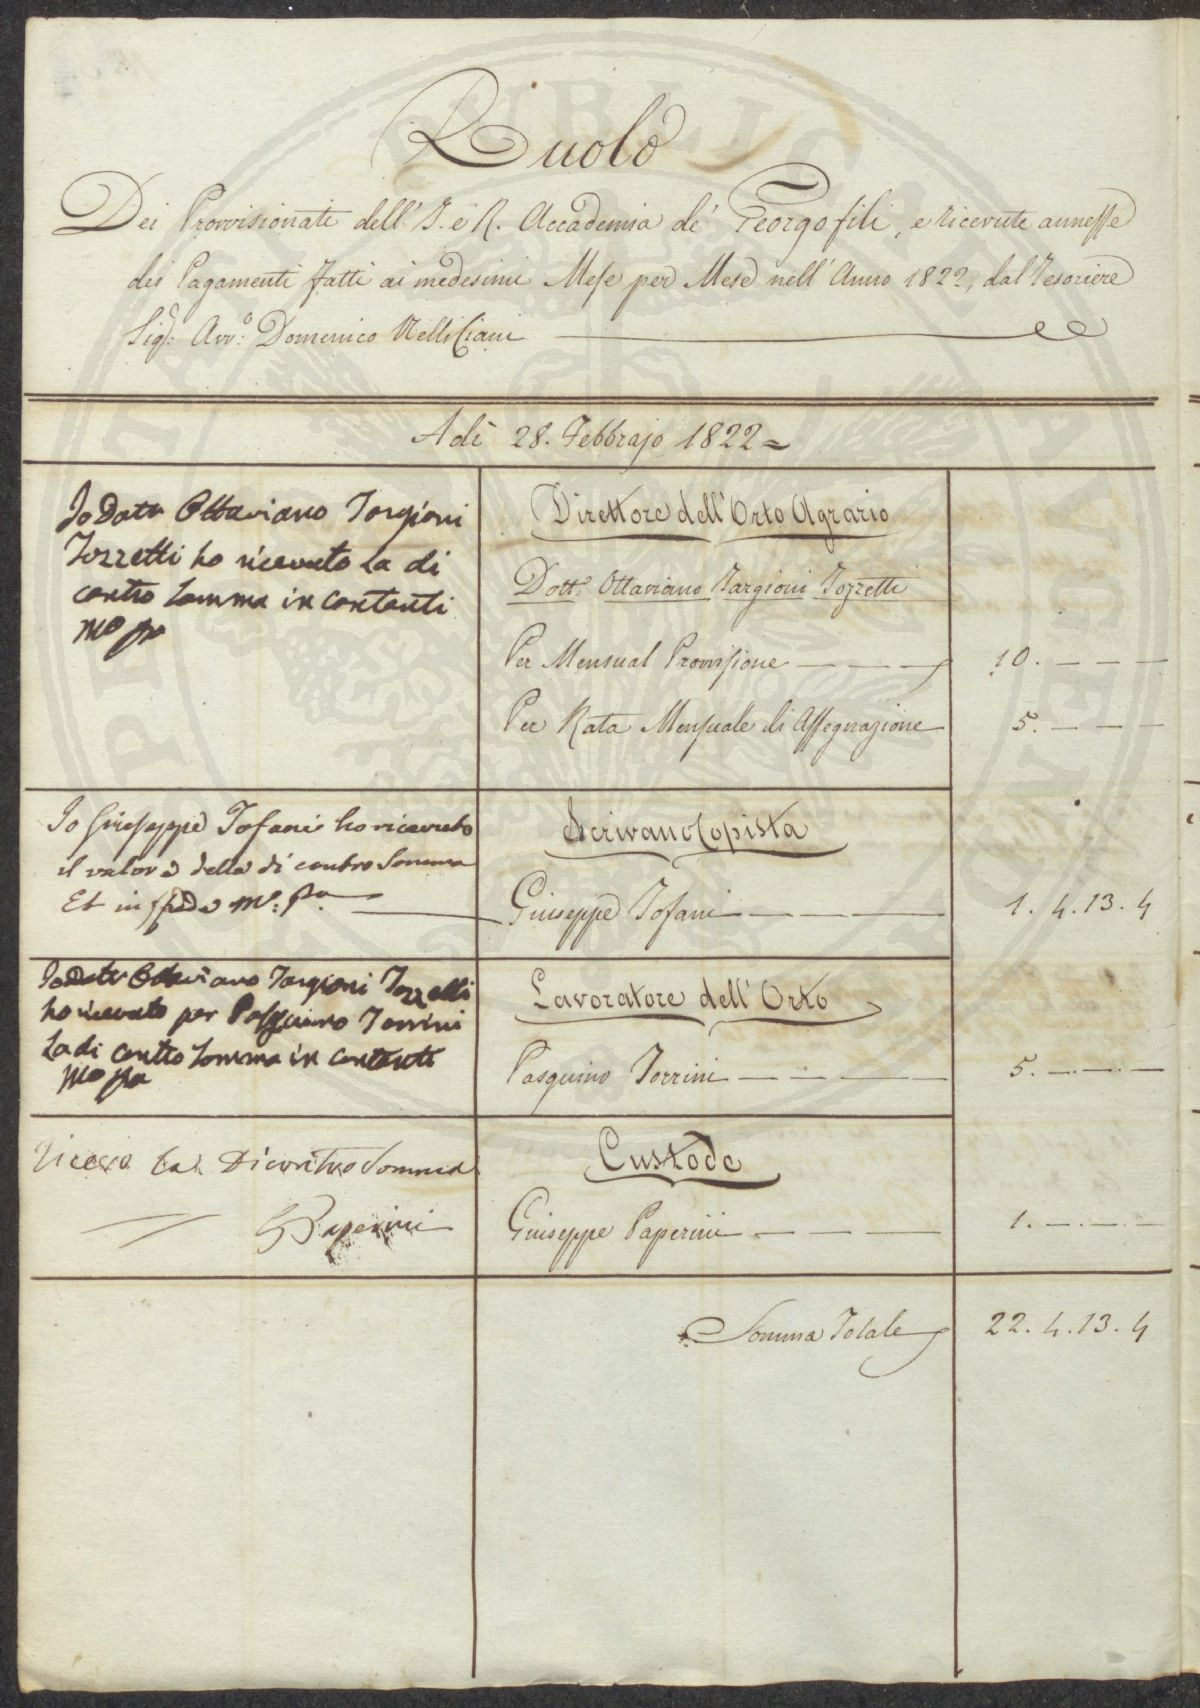 Ruolo
Dei Provvisionati dell' I. e R. Accademia de' Georgofili, e ricevute annesse
dei Pagamenti fatti ai medesimi Mese per Mese nell' Anno 1822, dal Tesoriere
Sig.r Avv.o Domenico Nelli Ciani
Adì 28. Febbrajo 1822
Io Dott Ottaviano Targioni
Tozzetti ho ricevuto La di
contro Somma in contanti
Mo pa
Direttore dell' Orto Agrario
Dott.r Ottaviano Targioni Tozzetti
Per Mensual Provvisione — — — 10. — — —
Per Rata Mensuale di Assegnazione 5. — — —
Io Giuseppe Tofani ho ricevuto
il valore della di contro Somma
Et in fede Mo: Pa
Scrivano Copista
Giuseppe Tofani — — — 1. 4. 13. 4
Io Dott Ottaviano Targioni Tozzetti
ho ricevuto per Pasquino Torrini
La di contro Somma in contanti
Mo pa
Lavoratore dell' Orto
Pasquino Torrini — — — 5. — — —
Ricevo la Dicontro Somma
G Paperini
Custode
Giuseppe Paperini — — — 1. — — —
Somma Totale 22. 4. 13. 4